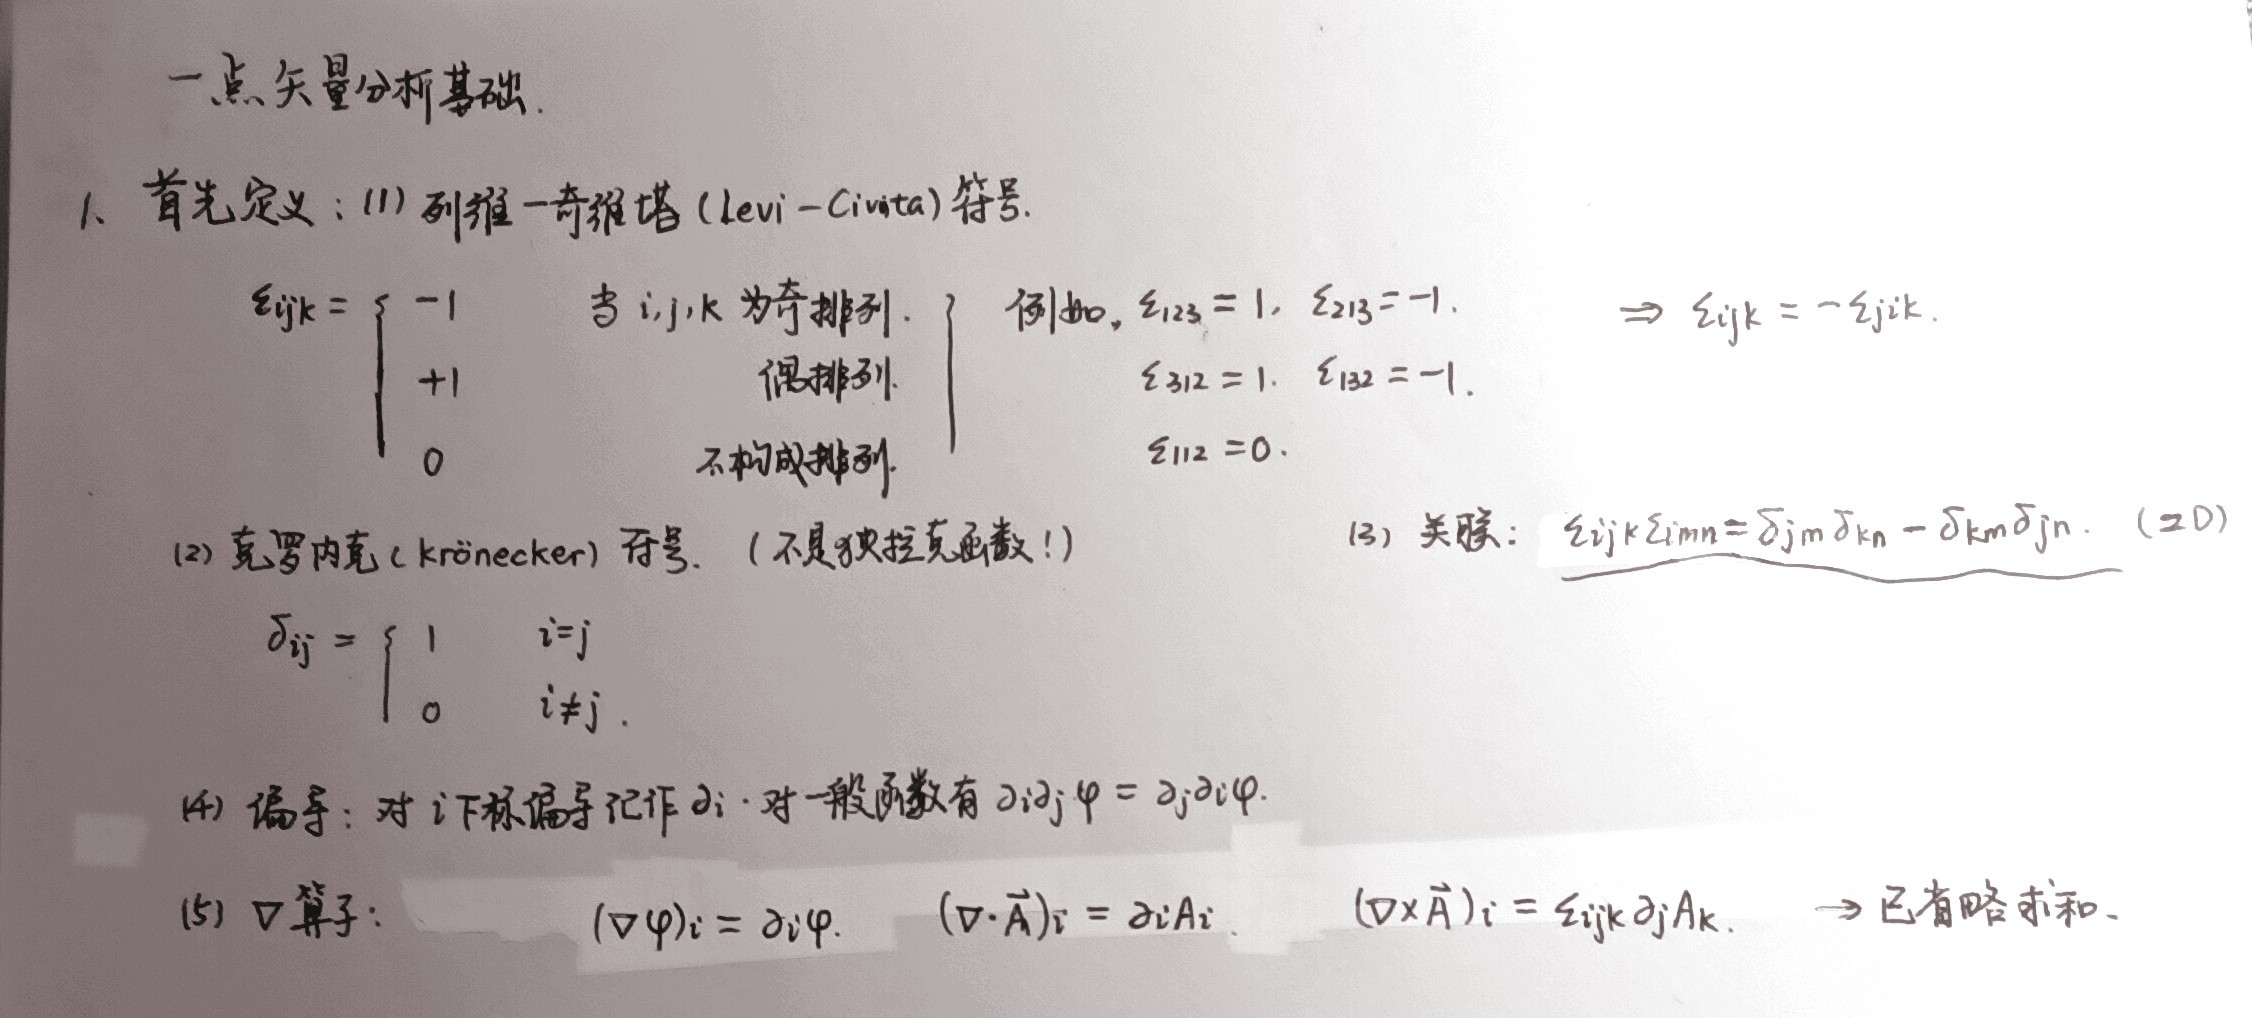 一点矢量分析基础.
1、首先定义：(1) 列维－奇维塔 (Levi-Civita) 符号.
εijk = { -1 当 i,j,k 为奇排列. 例如, ε123 = 1, ε213 = -1. ⇒ εijk = -εjik.
+1 偶排列. ε312 = 1. ε132 = -1.
0 不构成排列. ε112 = 0.
(2) 克罗内克 (krönecker) 符号. (不是狄拉克函数!) (3) 关联: εijkεimn = δjmδkn - δkmδjn. (2D)
δij = { 1 i=j
0 i≠j.
(4) 偏导: 对 i 下标偏导记作 ∂i. 对一般函数有 ∂i∂jφ = ∂j∂iφ.
(5) ∇算子: (∇φ)i = ∂iφ. (∇·A⃗)i = ∂iAi. (∇×A⃗)i = εijk∂jAk. → 已省略求和.